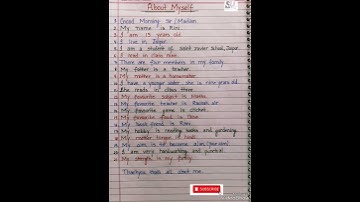 About Myself
1. Good Morning Sir/Madam
2. My name is Rimi
3. I am 15 years old
4. I live in Jaipur
5. I am a student of saint xavier school, Jaipur.
6. I read in class nine.
7. There are four members in my family.
8. My father is a teacher.
9. My mother is a homemaker
10. I have a younger sister. she is nine years old.
She reads in class three.
12. My favorite subject is Maths.
13. My favorite teacher is sir.
14. My favorite game is cricket.
15. My favorite food is
16. My best friend is Rima
17. My hobby is reading books and gardening.
18. My mother tongue is hindi
19. My aim is to become a/an
20. I am very hardworking and punctual.
21. My strength is my family.
Thankyou mam and
SUBSCRIBE